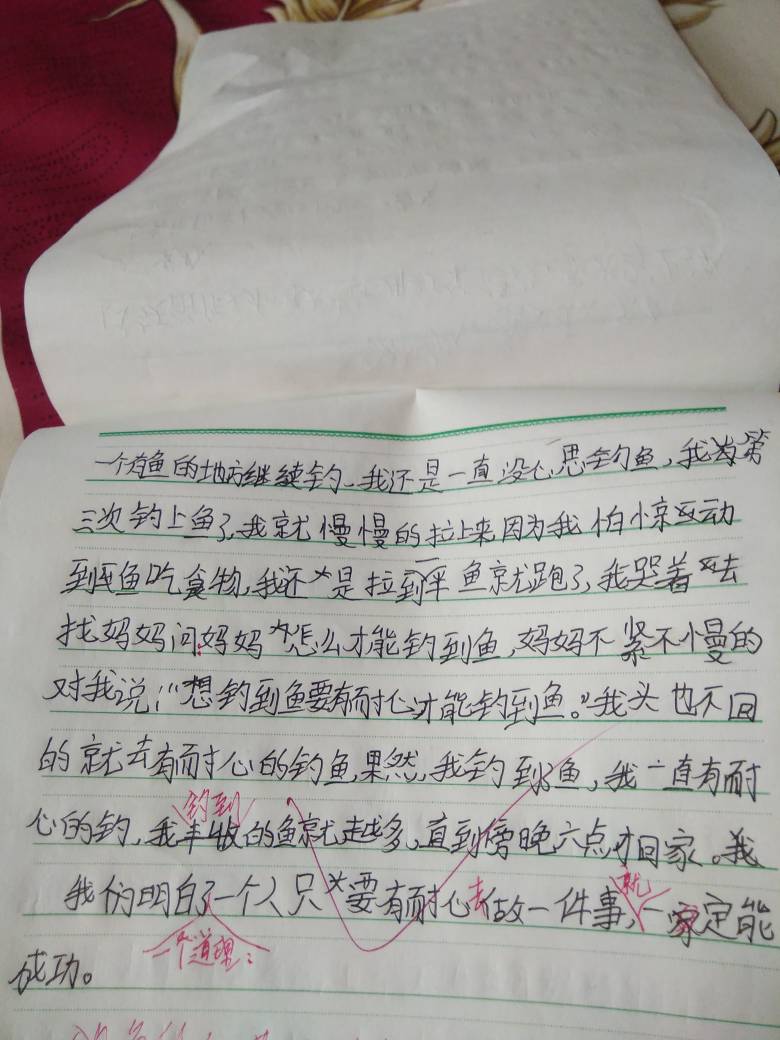 一个有鱼的地方继续钓、我还是一直没心思钓鱼,我当第
三次钓上鱼了,我就慢慢的拉上来因为我怕惊动
到鱼吃食物,我还是拉到一半鱼就跑了,我哭着去
找妈妈问妈妈怎么才能钓到鱼,妈妈不紧不慢的
对我说:“想钓到鱼要有耐心才能钓到鱼。”我头也不回
的就去有耐心的钓鱼,果然,我钓到鱼,我一直有耐
钓到
心的钓,我丰收的鱼就越多,直到傍晚六点才回家。我
我们明白了一个人只要有耐心去做一件事,就一定能
一个道理:
成功。